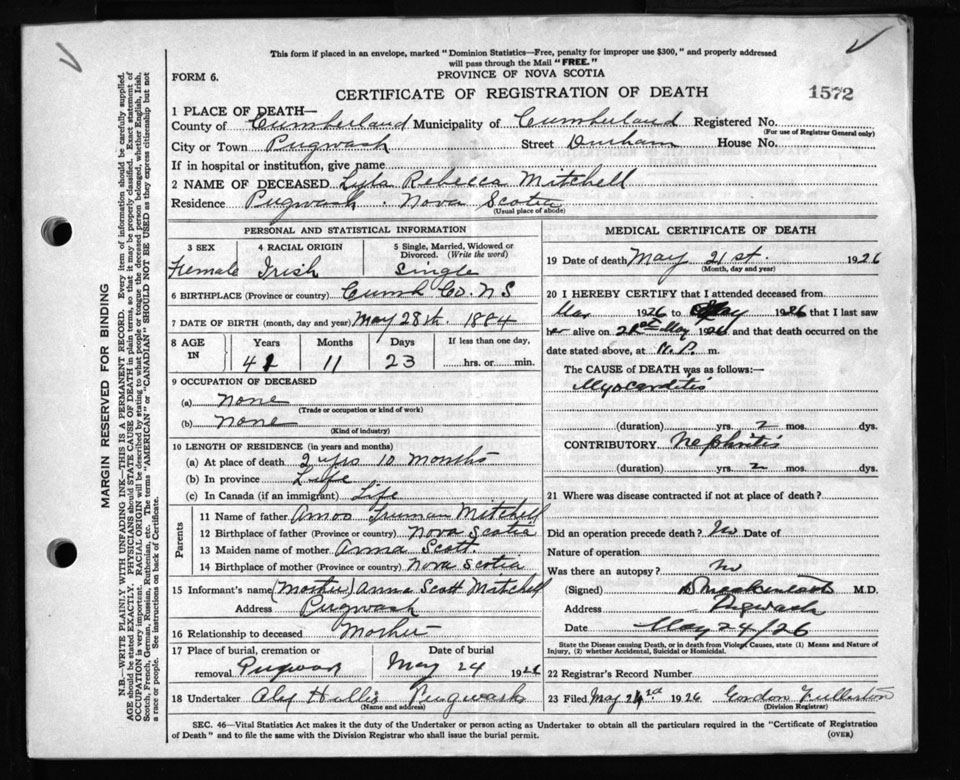 This form if placed in an envelope, marked "Dominion Statistics—Free, penalty for improper use $300," and properly addressed
will pass through the Mail "FREE."
FORM 6.
PROVINCE OF NOVA SCOTIA
CERTIFICATE OF REGISTRATION OF DEATH
1572
1 PLACE OF DEATH—
County of Cumberland Municipality of Cumberland Registered No.
(For use of Registrar General only)
City or Town Pugwash Street Durham House No.
If in hospital or institution, give name
2 NAME OF DECEASED Lyla Rebecca Mitchell
Residence Pugwash Nova Scotia
(Usual place of abode)
PERSONAL AND STATISTICAL INFORMATION
3 SEX 4 RACIAL ORIGIN 5 Single, Married, Widowed or Divorced. (Write the word)
Female Irish Single
6 BIRTHPLACE (Province or country) Cumb Co. N S
7 DATE OF BIRTH (month, day and year) May 28th. 1884
8 AGE IN Years Months Days If less than one day,
41 11 23 hrs. or min.
9 OCCUPATION OF DECEASED
(a) none
(Trade or occupation or kind of work)
(b) none
(Kind of industry)
10 LENGTH OF RESIDENCE (in years and months)
(a) At place of death 2 yrs 10 months
(b) In province Life
(c) In Canada (if an immigrant) Life
Parents
11 Name of father Amos Truman Mitchell
12 Birthplace of father (Province or country) Nova Scotia
13 Maiden name of mother Anna Scott.
14 Birthplace of mother (Province or country) Nova Scotia
15 Informant's name (Mother) Anna Scott Mitchell
Address Pugwash
16 Relationship to deceased Mother
17 Place of burial, cremation or removal Pugwash Date of burial May 24 1926
18 Undertaker Pugwash
(Name and address)
MEDICAL CERTIFICATE OF DEATH
19 Date of death May 21st. 1926
(Month, day and year)
20 I HEREBY CERTIFY that I attended deceased from
Mar 1926 to May 1926 that I last saw
her alive on 21st May 1926 and that death occurred on
date stated above, at m.
The CAUSE of DEATH was as follows:—
Myocarditis
(duration) yrs. 2 mos. dys.
CONTRIBUTORY Nephritis
(duration) yrs. 2 mos. dys.
21 Where was disease contracted if not at place of death?
Did an operation precede death? No Date of
Nature of operation
Was there an autopsy? No
(Signed) M.D.
Address Pugwash
Date May 24/26
State the Disease causing Death, or in death from Violent Causes, state (1) Means and Nature of
Injury, (2) whether Accidental, Suicidal or Homicidal.
22 Registrar's Record Number
23 Filed May 1926 Gordon Fullerton
(Division Registrar)
SEC. 46—Vital Statistics Act makes it the duty of the Undertaker or person acting as Undertaker to obtain all the particulars required in the "Certificate of Registration
of Death" and to file the same with the Division Registrar who shall issue the burial permit.
(OVER)
MARGIN RESERVED FOR BINDING
N.B.—WRITE PLAINLY WITH UNFADING INK—THIS IS A PERMANENT RECORD. Every item of information should be carefully supplied.
AGE should be stated EXACTLY. PHYSICIANS should STATE CAUSE OF DEATH in plain terms, so that it may be properly classified. Exact statement of
OCCUPATION is very important. RACIAL ORIGIN will be described by stating to what people or tongue the deceased person belonged, whether English, Irish,
Scotch, French, German, Russian, Ruthenian, etc. The terms "AMERICAN" or "CANADIAN" SHOULD NOT BE USED as they express citizenship but not
a race or people. See instructions on back of Certificate.